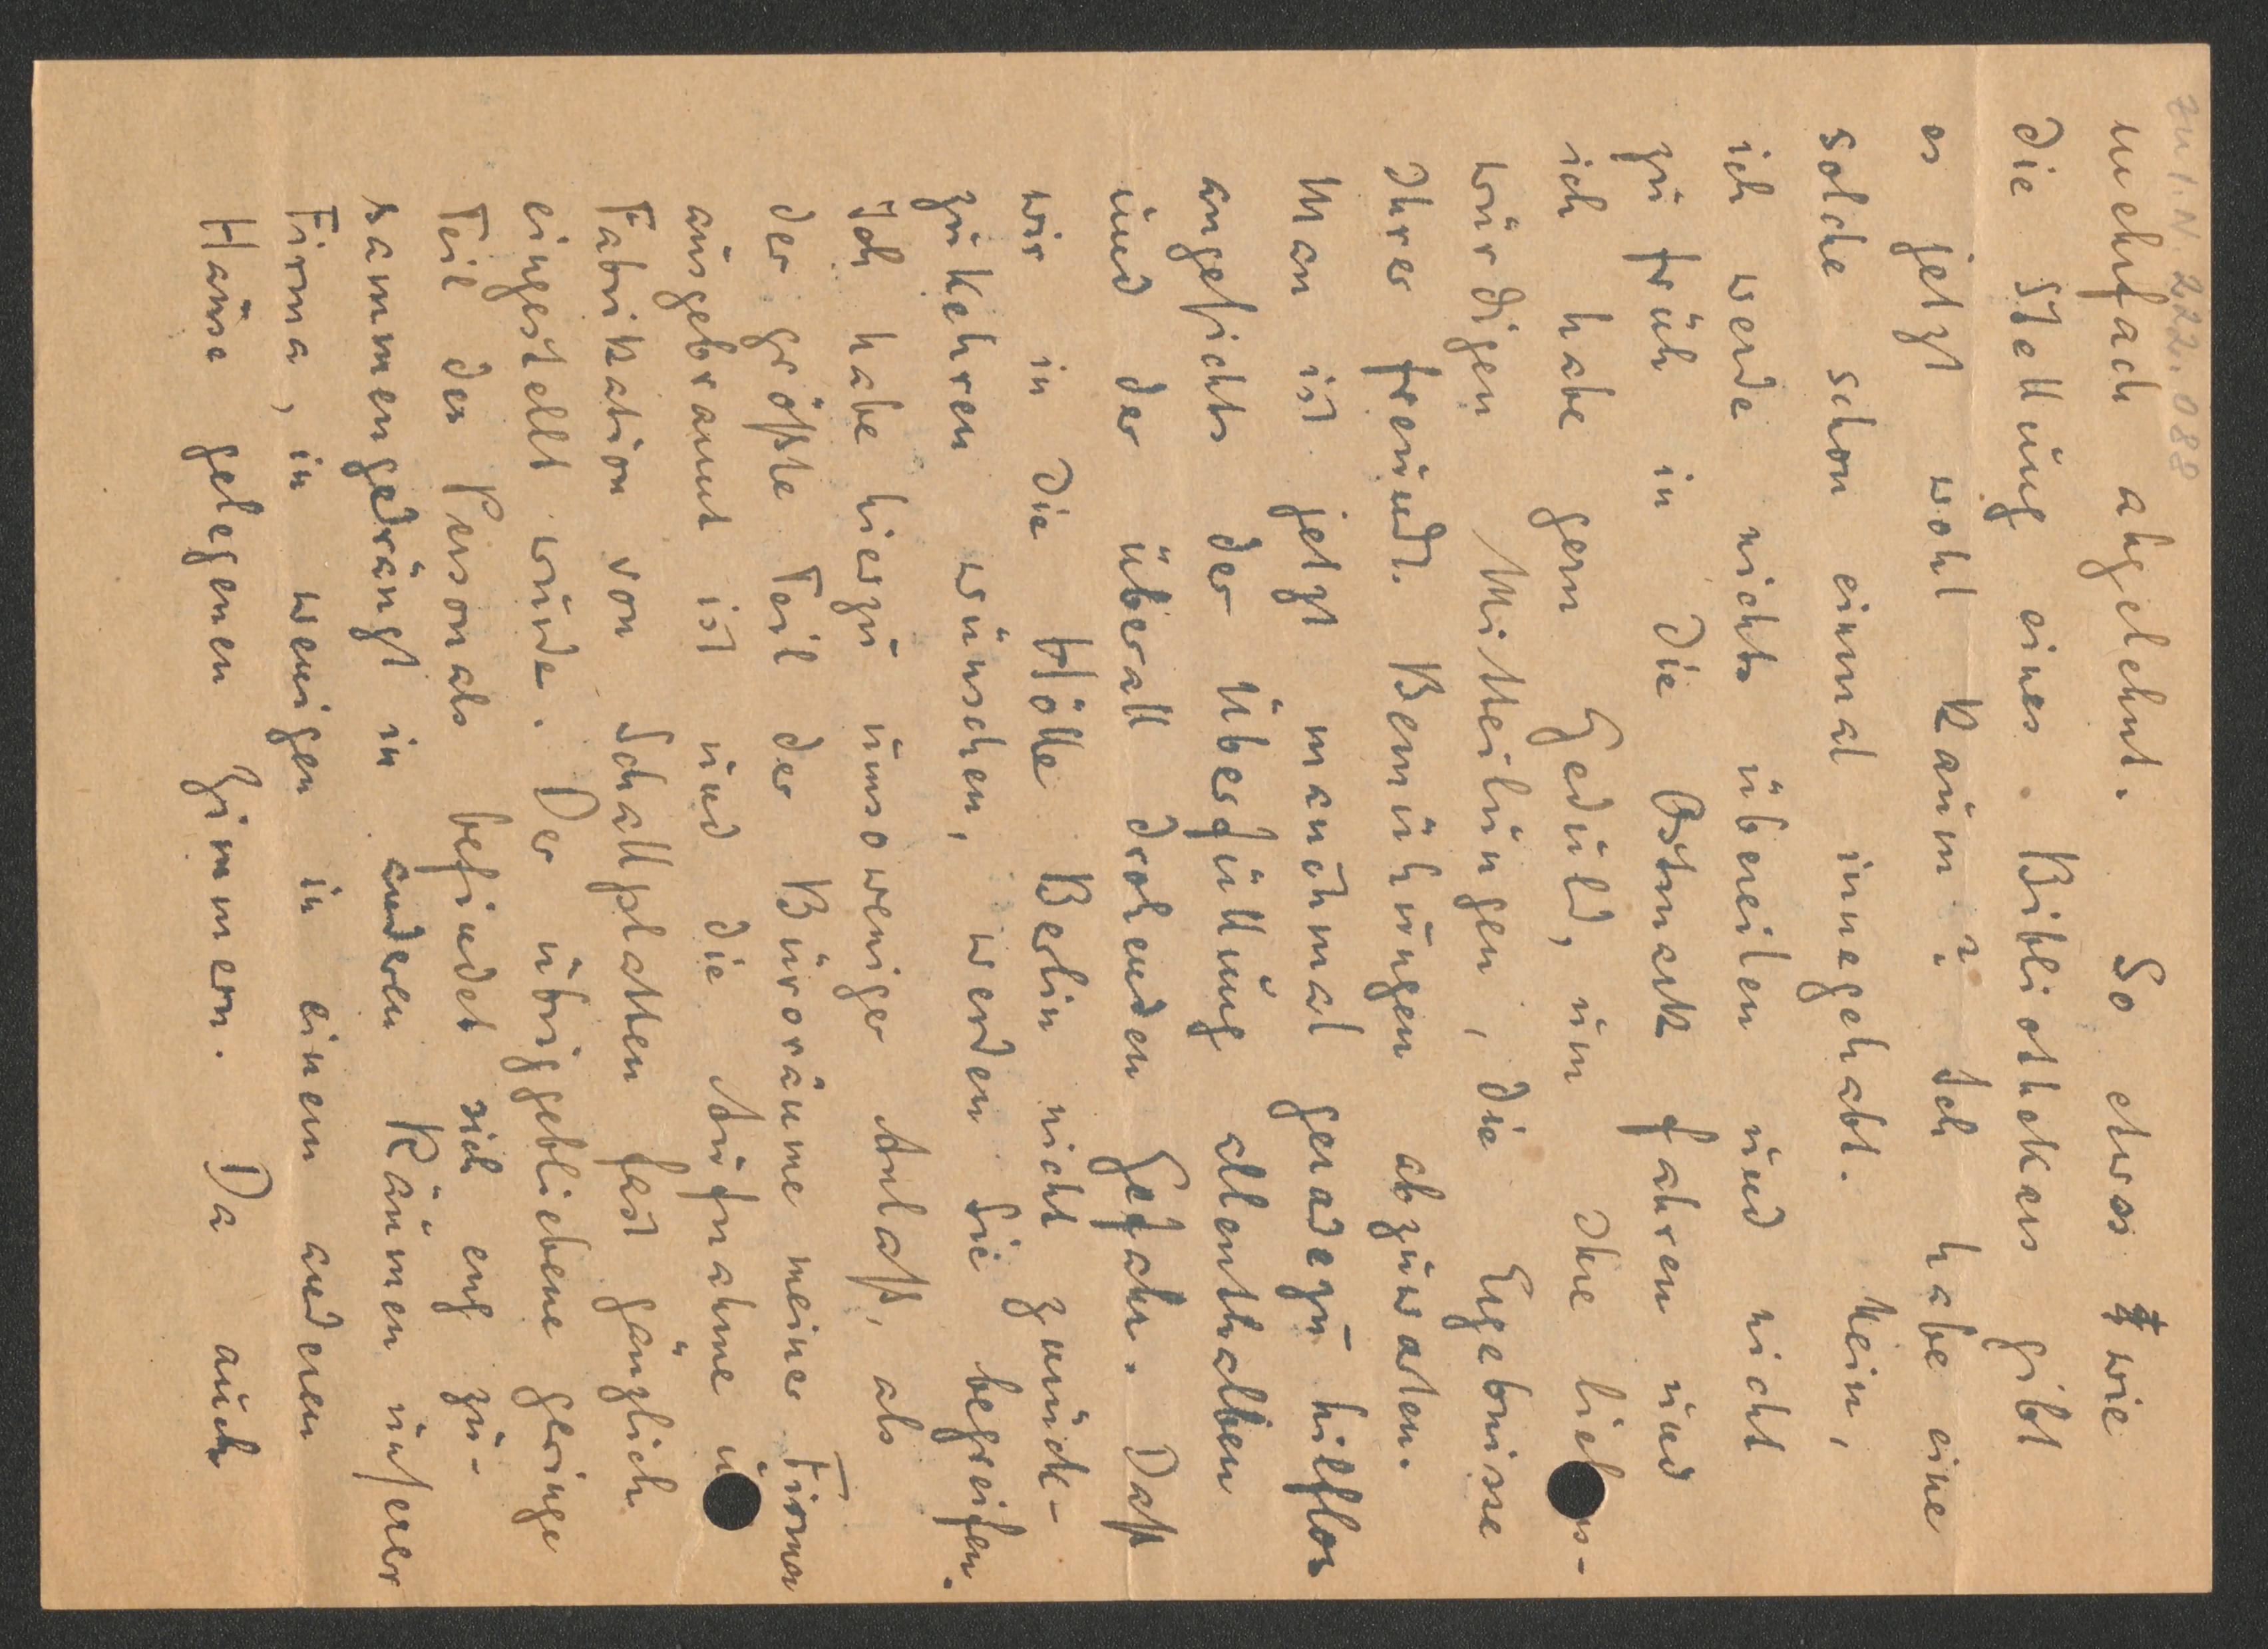 zu I.N. 222.088
mehrfach abgelehnt. So etwas wie
die Stellung eines Bibliothekars gibt
es jetzt wohl kaum? Ich habe eine
solche schon einmal innegehabt. Nein,
ich werde nichts übereilen und nicht
zu früh in die Ostmark fahren und
ich habe gern Geduld, um Ihre lieb ns-
würdigen Mitteilungen, die Ergebnisse
Ihrer freundl. Bemühungen abzuwarten.
Man ist jetzt manchmal geradezu hilflos
angesichts der Überfüllung allenthalben
und der überall drohenden Gefahr. Daß
wir in die Hölle Berlin nicht zurück-
zukehren wünschen, werden Sie begreifen.
Ich habe hierzu umsoweniger Anlaß, als
der größte Teil der Büroräume meiner Firma
ausgebrannt ist und die Aufnahme u
Fabrikation von Schallplatten fast gänzlich
eingestellt wurde. Der übriggebliebene geringe
Teil des Personals befindet sich eng zu-
sammengedrängt in anderen Räumen unserer
Firma, in wenigen in einem anderen
Hause gelegenen Zimmern. Da auch